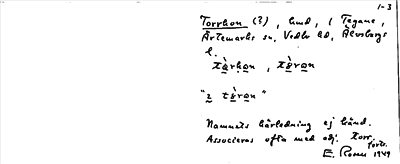 1-3
Torrhon (?), hmd, i Tegane,
Ärtemarks sn, Vedbo hd, Älvsborgs
l.
tàrhon, tòron
"i tòron"
Namnets härledning ej känd.
Associeras ofta med adj. torr.
forts.
E. Rosen 1949